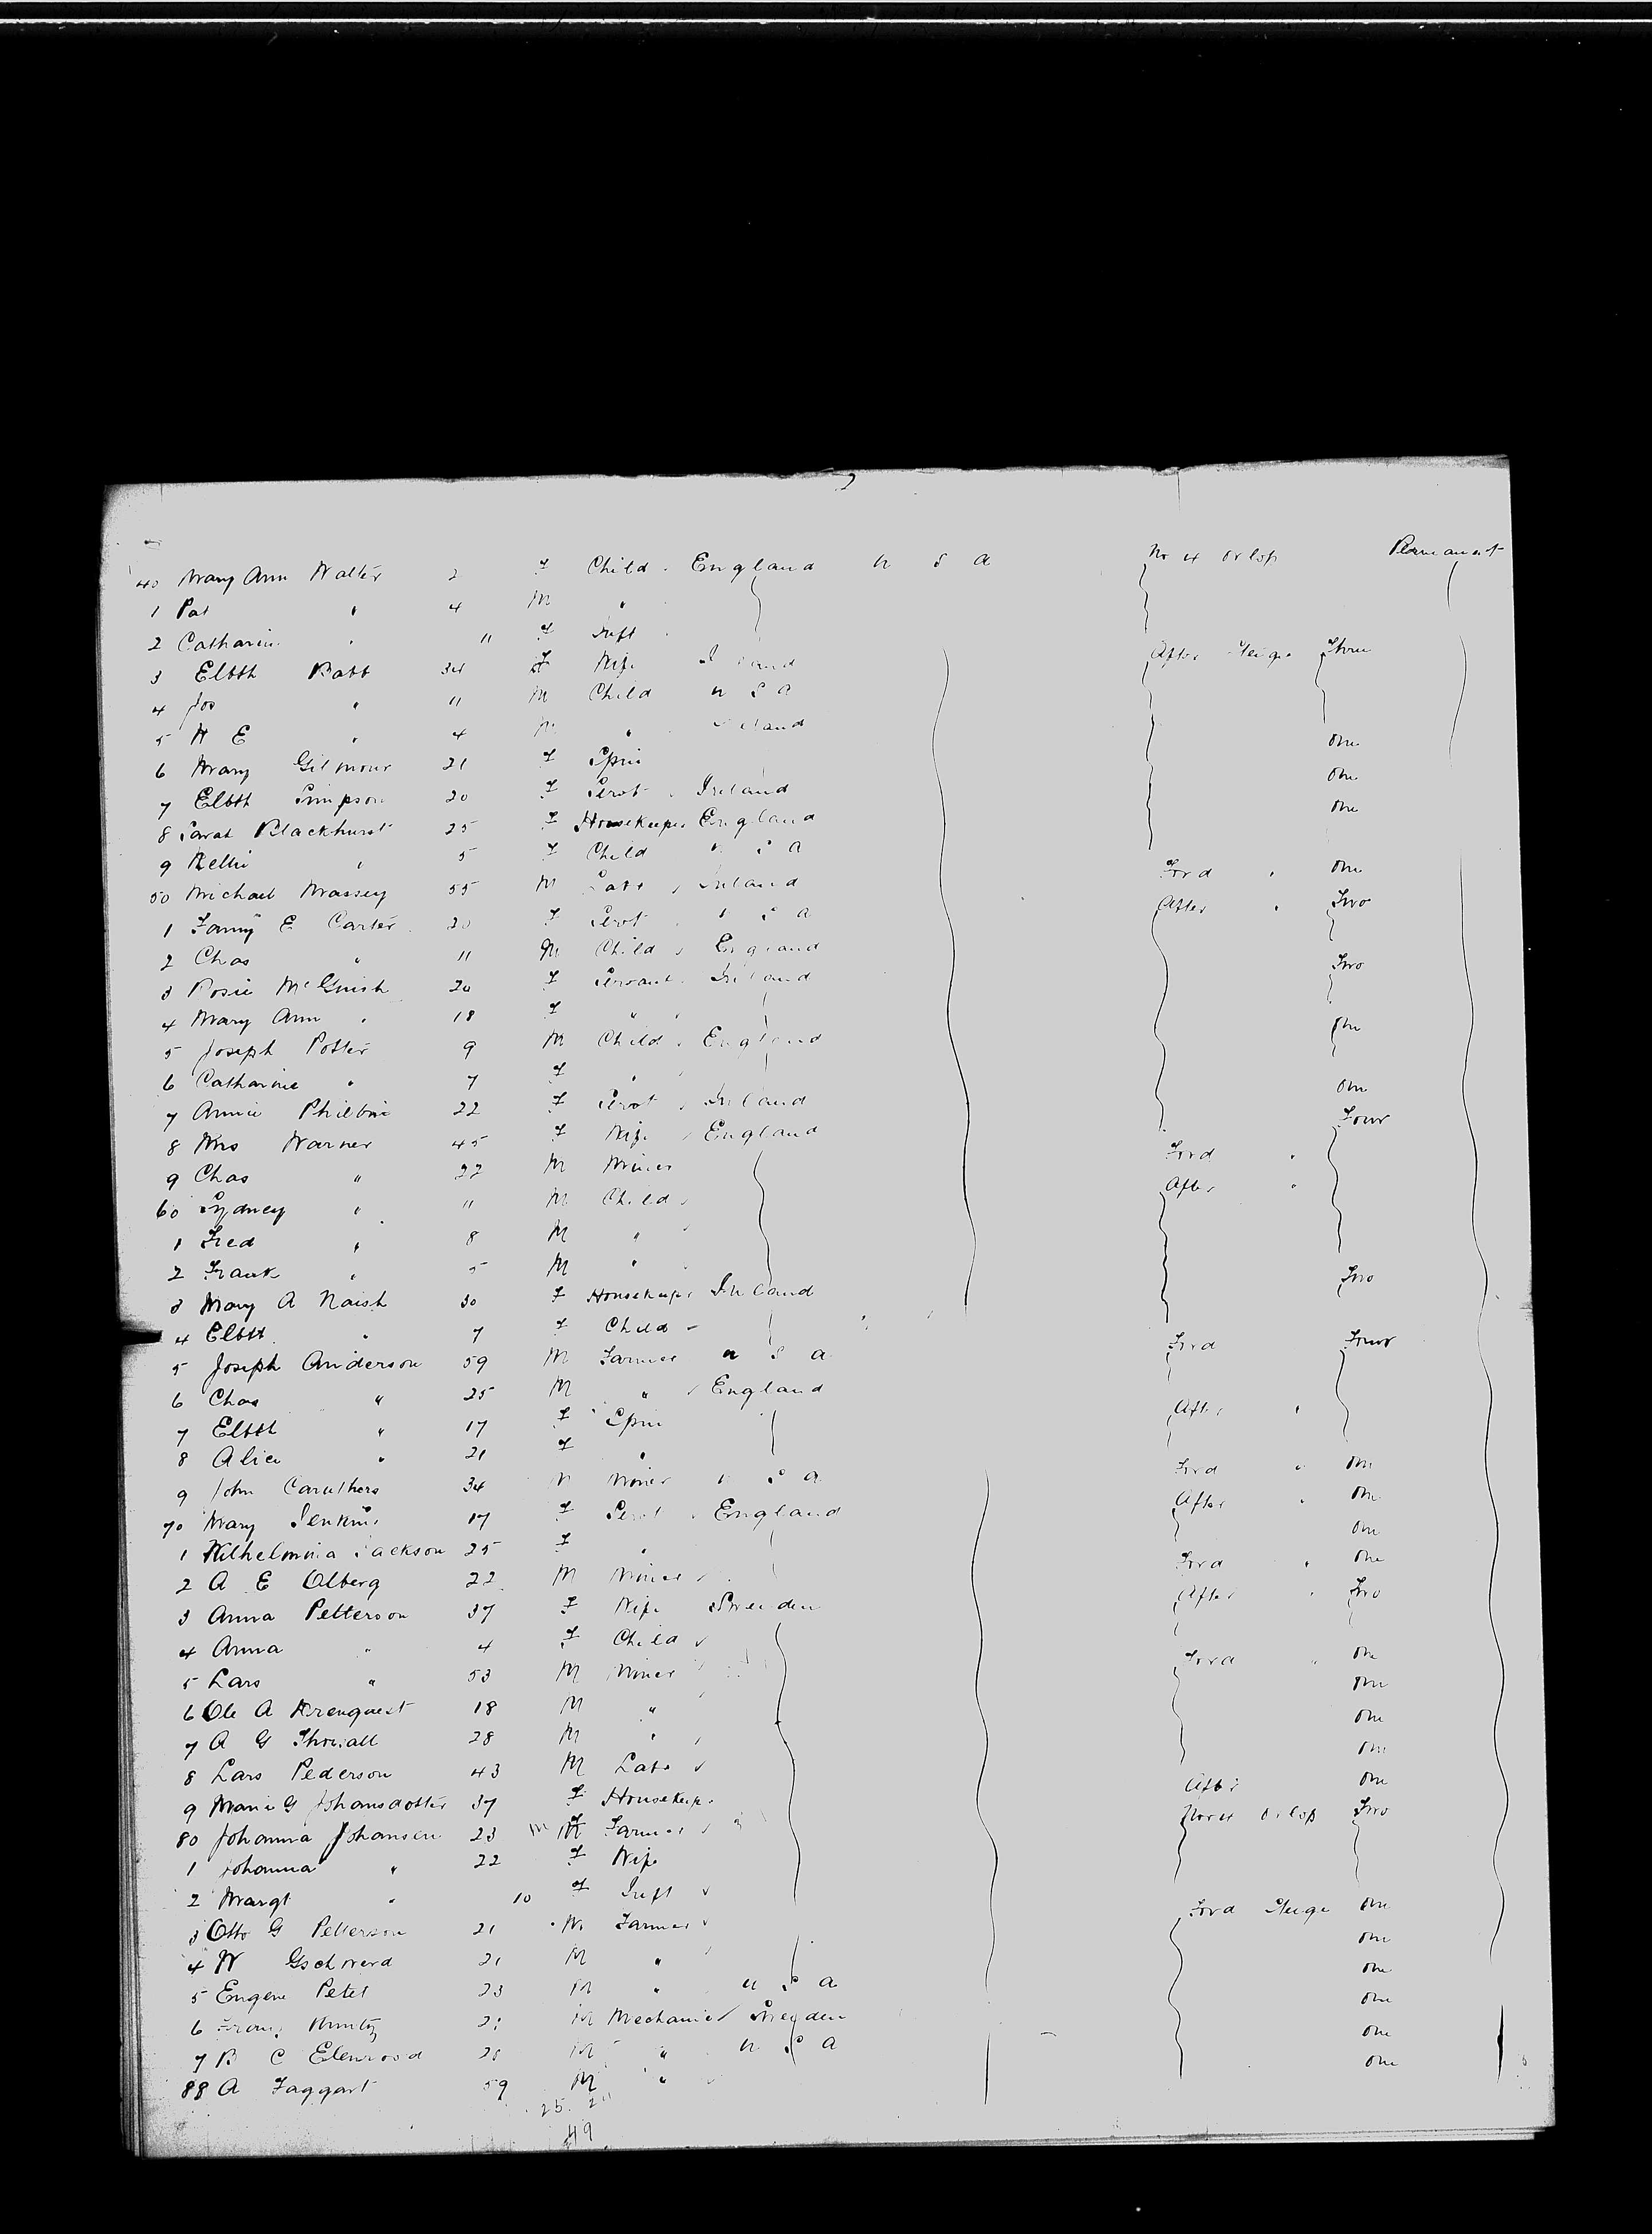 40 Mary Ann Walter 2 F Child England U S A No 4 Orlop Permanent
1 Pat " 4 M "
2 Catharin " 11 F Inft
3 Elbth Batt 34 F Wife After Steige Three
4 Jos " 11 M Child U S A
5 W E " 4 M "
6 Mary Gilmour 21 F Spin One
7 Elbth Simpson 20 F Servt Ireland One
8 Sarah Blackhurst 25 F Housekeeper England One
9 Nellie " 5 F Child U S A
50 Michael Massey 55 M Labr Ireland Ford " One
1 Fanny E Carter 20 F Servt U S A After " Two
2 Chas " 11 M Child England
3 Rosie McGuish 20 F Servant Ireland Two
4 Mary Ann " 18 F "
5 Joseph Potter 9 M Child England One
6 Catharine " 7 F "
7 Annie Philbin 22 F Servt Ireland One
8 Mrs Warner 45 F Wife England Four
9 Chas " 22 M Miner Ford "
60 Sydney " 11 M Child After "
1 Fred " 8 M "
2 Frank " 5 M "
3 Mary A Naish 30 F Housekeeper Ireland Two
4 Elbth " 7 F Child
5 Joseph Anderson 59 M Farmer U S A Ford Four
6 Chas " 25 M " England
7 Elbth " 17 F Spin After "
8 Alice " 21 F "
9 John Caruthers 34 M Miner U S A Ford " One
70 Mary Jenkins 17 F Servt England After " One
1 Wilhelmina Jackson 25 F " One
2 A E Olberg 22 M Miner Ford " One
3 Anna Petterson 37 F Wife Sweeden After " Two
4 Anna " 4 F Child
5 Lars " 53 M Miner Ford " One
6 Ole A 18 M " One
7 A G 28 M " One
8 Lars Pederson 43 M Labr One
9 Marie G Johansdotter 37 F Housekeepr After One
80 Johanna Johansen 23 M Farmer No 4 Orlop Two
1 Johanna " 22 F Wife
2 Margt " 10 F Inft
3 Otto G Petterson 21 M Farmer Ford Steige One
4 W 21 M " One
5 Eugene Petet 23 M " U S A One
6 M Mechanic Sweeden One
7 B C M " U S A One
88 A Taggart 59 M " One
25
49